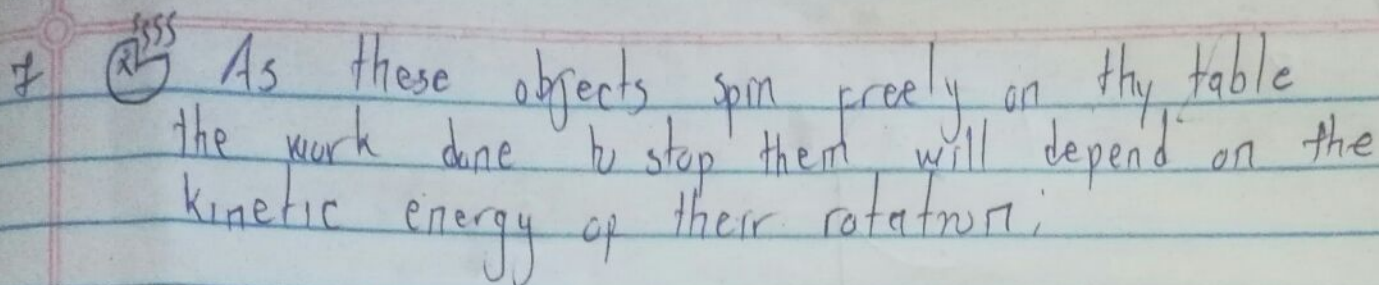 7 As these objects spin freely on thy table
the work done to stop them will depend on the
kinetic energy of their rotation;